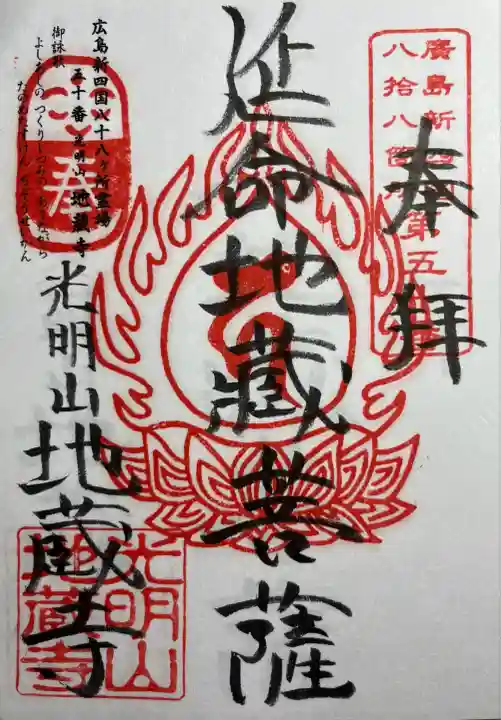 奉拝
廣島新四国
八拾八箇所第五
延命地蔵菩薩
広島新四国八十八ケ所霊場
五十番 光明山 地蔵寺
御詠歌
光明山地蔵寺
光明山
地蔵寺